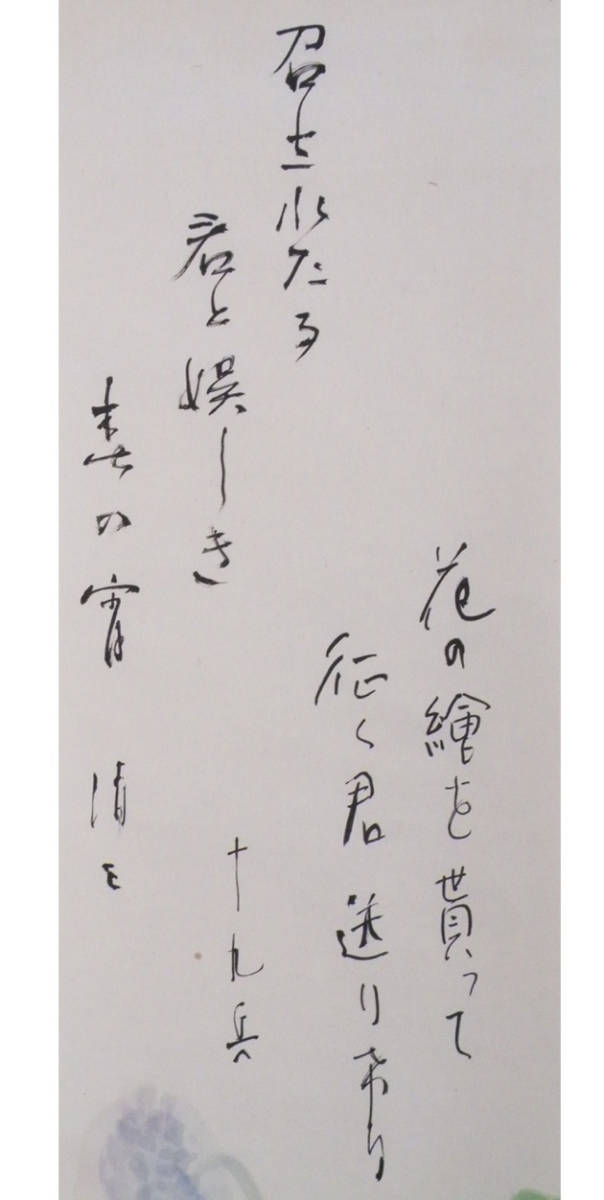 花の繪を貰って
征く君送りけり
十九兵
召されたる
君と娯しき
春の宵 清を